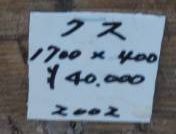 クス
1700 × 400
¥40.000
2002